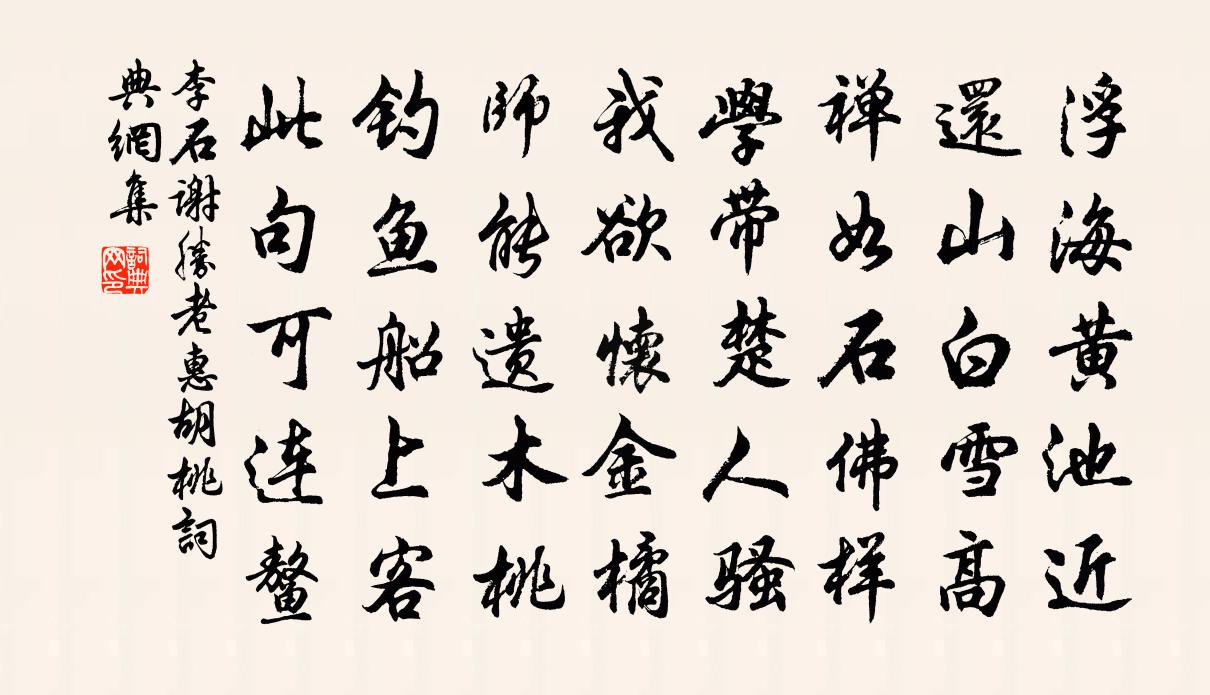 浮海黄池近
還山白雪高
禅如石佛样
學带楚人骚
我欲懷金橘
師能遗木桃
钓鱼船上客
此句可连鳌
李石谢勝老惠胡桃詞
典網集
詞典